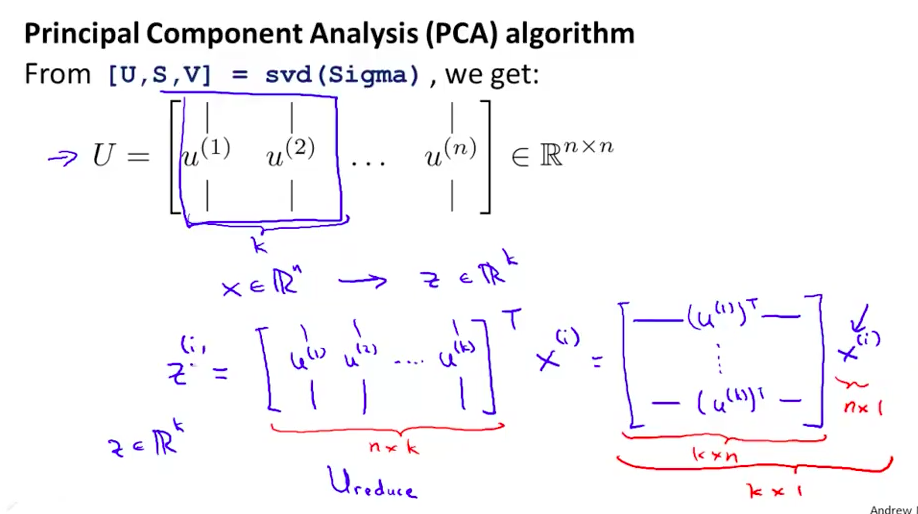 Principal Component Analysis (PCA) algorithm
From [U,S,V] = svd(Sigma) , we get:
→ U = [ u^(1) u^(2) ... u^(n) ] ∈ ℝ^{n×n}
k
x ∈ ℝ^n → z ∈ ℝ^k
z^(i) = [ u^(1) u^(2) .... u^(k) ]^T x^(i) = [ — (u^(1))^T — ⋮ — (u^(k))^T — ] x^(i)
n × 1
z ∈ ℝ^k
n × k
k × n
Ureduce
k × 1
Andrew